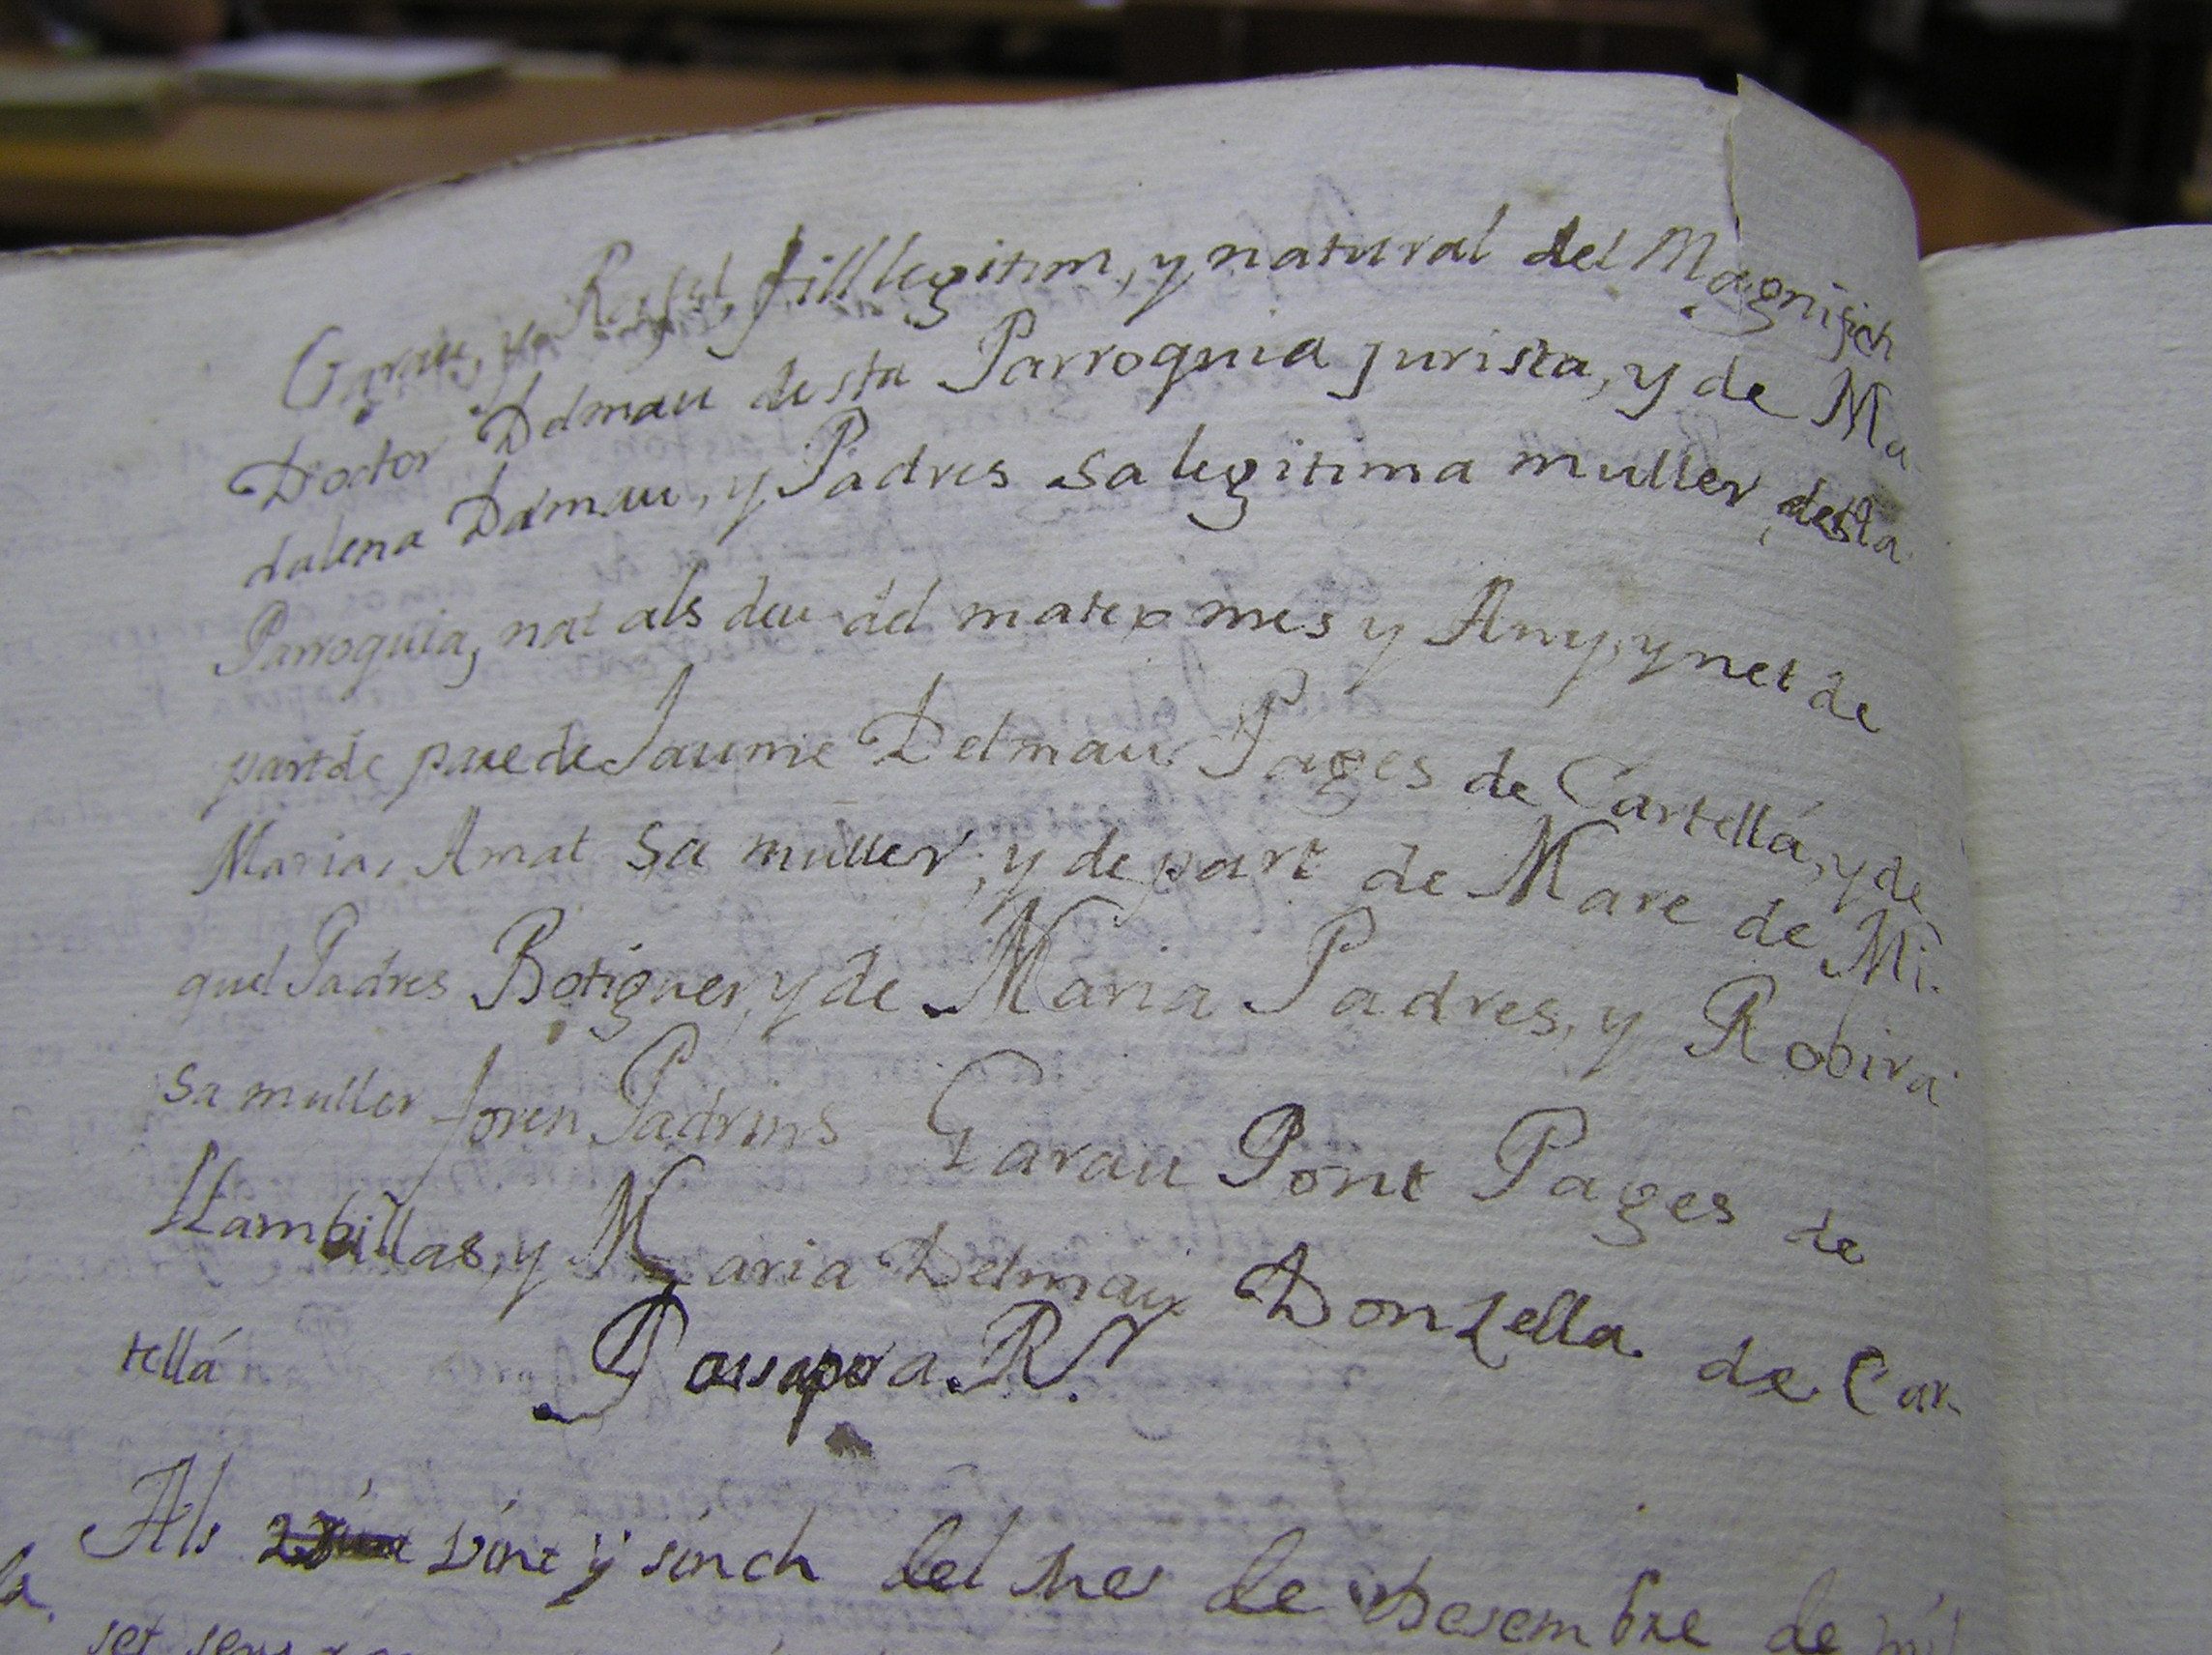 Garau, y Rafel, fill llegitim, y natural del Magnifich
Doctor Delmau desta Parroquia jurista, y de Ma
dalena Dalmau, y Padres sa legitima muller desta
Parroquia, nat als deu del matex mes y Any, y net de
part de pare de Jaume Delmau Pages de Cartellá, y de
Maria, Amat sa muller, y de part de Mare de Mi.
quel Padres Botiguer, y de Maria Padres, y Robira
sa muller foren Padrins Garau Pont Pages de
Llambillas, y Maria Delmau Donzella de Car
tellá
R.
Als vint y sinch del mes de Desembre de mil
la.
set sens